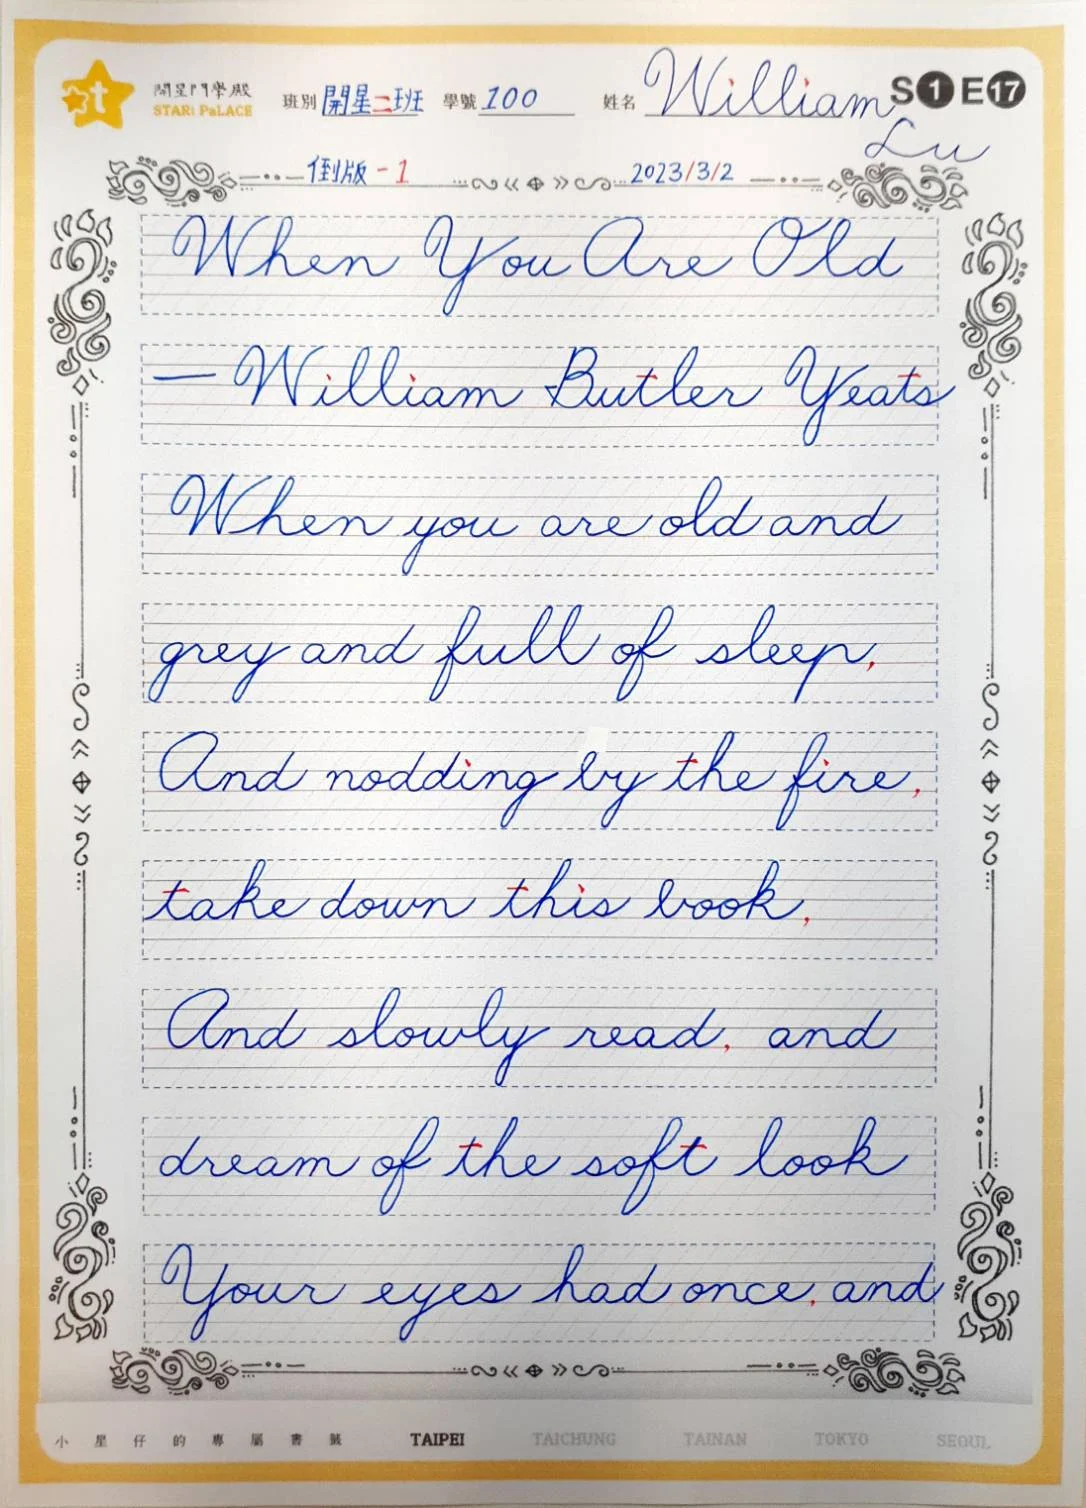 開星門學殿
STARi PaLACE
班別 開星二班 學號 100 姓名 William Lu
S1 E17
倒版-1 2023/3/2
When You Are Old
— William Butler Yeats
When you are old and
grey and full of sleep,
And nodding by the fire,
take down this book,
And slowly read, and
dream of the soft look
Your eyes had once, and
小星仔的專屬書籤 TAIPEI TAICHUNG TAINAN TOKYO SEOUL